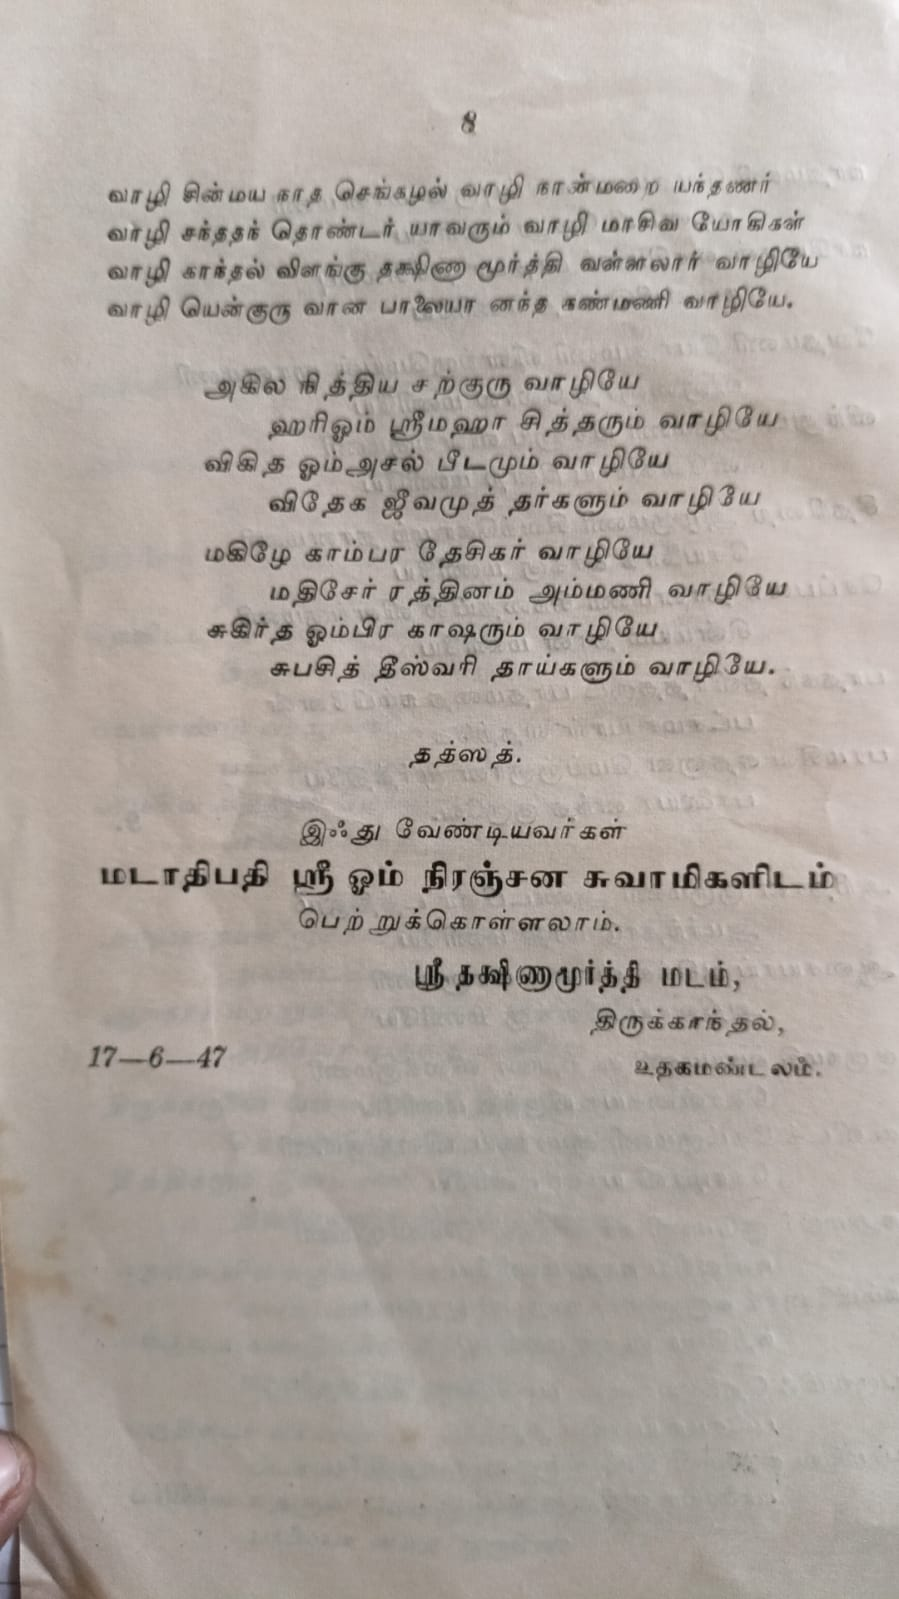 8
வாழி சின்மய நாத செங்கழல் வாழி நான்மறை யந்தணர்
வாழி சந்ததந் தொண்டர் யாவரும் வாழி மாசிவ யோகிகள்
வாழி காந்தல் விளங்கு தக்ஷிண மூர்த்தி வள்ளலார் வாழியே
வாழி யென்குரு வான பாலையா னந்த கண்மணி வாழியே.
அகில நித்திய சற்குரு வாழியே
ஹரிஓம் ஸ்ரீமஹா சித்தரும் வாழியே
விகித ஓம்அசல் பீடமும் வாழியே
விதேக ஜீவமுத் தர்களும் வாழியே
மகிழே காம்பர தேசிகர் வாழியே
மதிசேர் ரத்தினம் அம்மணி வாழியே
சுகிர்த ஓம்பிர காஷரும் வாழியே
சுபசித் தீஸ்வரி தாய்களும் வாழியே.
தத்ஸத்.
இஃது வேண்டியவர்கள்
மடாதிபதி ஸ்ரீ ஓம் நிரஞ்சன சுவாமிகளிடம்
பெற்றுக்கொள்ளலாம்.
ஸ்ரீ தக்ஷிணாமூர்த்தி மடம்,
திருக்காந்தல்,
17—6—47 உதகமண்டலம்.